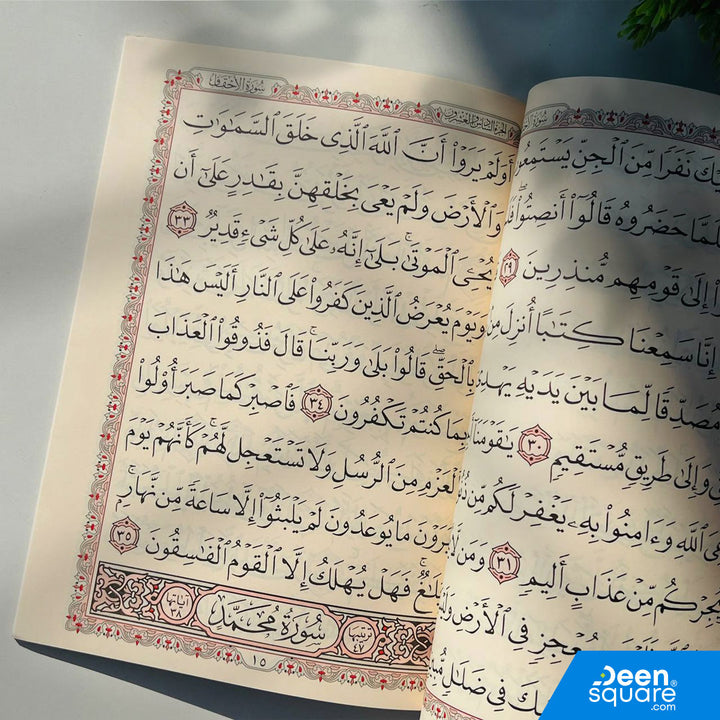 سُورَةُ
نَفَرًا مِّنَ ٱلْجِنِّ يَسْتَمِعُو
حَضَرُوهُ قَالُوٓا۟ أَنصِتُوا۟ۖ
إِلَىٰ قَوْمِهِم مُّنذِرِينَ ٢٩
إِنَّا سَمِعْنَا كِتَٰبًا أُنزِلَ مِنۢ
مُصَدِّقًا لِّمَا بَيْنَ يَدَيْهِ يَهْدِىٓ
وَإِلَىٰ طَرِيقٍ مُّسْتَقِيمٍ ٣٠ يَٰقَوْمَنَآ
ٱللَّهِ وَءَامِنُوا۟ بِهِۦ يَغْفِرْ لَكُم مِّن
يُجِرْكُم مِّنْ عَذَابٍ أَلِيمٍ ٣١ وَمَن لَّا
فِى ٱلْأَرْضِ
فِى ضَلَٰلٍ
الجزء السادس والعشرون
سُورَةُ الأَحْقَافِ
أَوَلَمْ يَرَوْا۟ أَنَّ ٱللَّهَ ٱلَّذِى خَلَقَ ٱلسَّمَٰوَٰتِ
وَٱلْأَرْضَ وَلَمْ يَعْىَ بِخَلْقِهِنَّ بِقَٰدِرٍ عَلَىٰٓ أَن
يُحْـِۧىَ ٱلْمَوْتَىٰۚ بَلَىٰٓ إِنَّهُۥ عَلَىٰ كُلِّ شَىْءٍ قَدِيرٌ ٣٣
وَيَوْمَ يُعْرَضُ ٱلَّذِينَ كَفَرُوا۟ عَلَى ٱلنَّارِ أَلَيْسَ هَٰذَا
بِٱلْحَقِّۖ قَالُوا۟ بَلَىٰ وَرَبِّنَاۚ قَالَ فَذُوقُوا۟ ٱلْعَذَابَ
بِمَا كُنتُمْ تَكْفُرُونَ ٣٤ فَٱصْبِرْ كَمَا صَبَرَ أُو۟لُوا۟
ٱلْعَزْمِ مِنَ ٱلرُّسُلِ وَلَا تَسْتَعْجِل لَّهُمْۚ كَأَنَّهُمْ يَوْمَ
يَرَوْنَ مَا يُوعَدُونَ لَمْ يَلْبَثُوٓا۟ إِلَّا سَاعَةً مِّن نَّهَارٍۭۚ
بَلَٰغٌۚ فَهَلْ يُهْلَكُ إِلَّا ٱلْقَوْمُ ٱلْفَٰسِقُونَ ٣٥
ترتيبها ٤٧ سُورَةُ مُحَمَّدٍ آياتها ٣٨
١٥
Deen
square®
.com